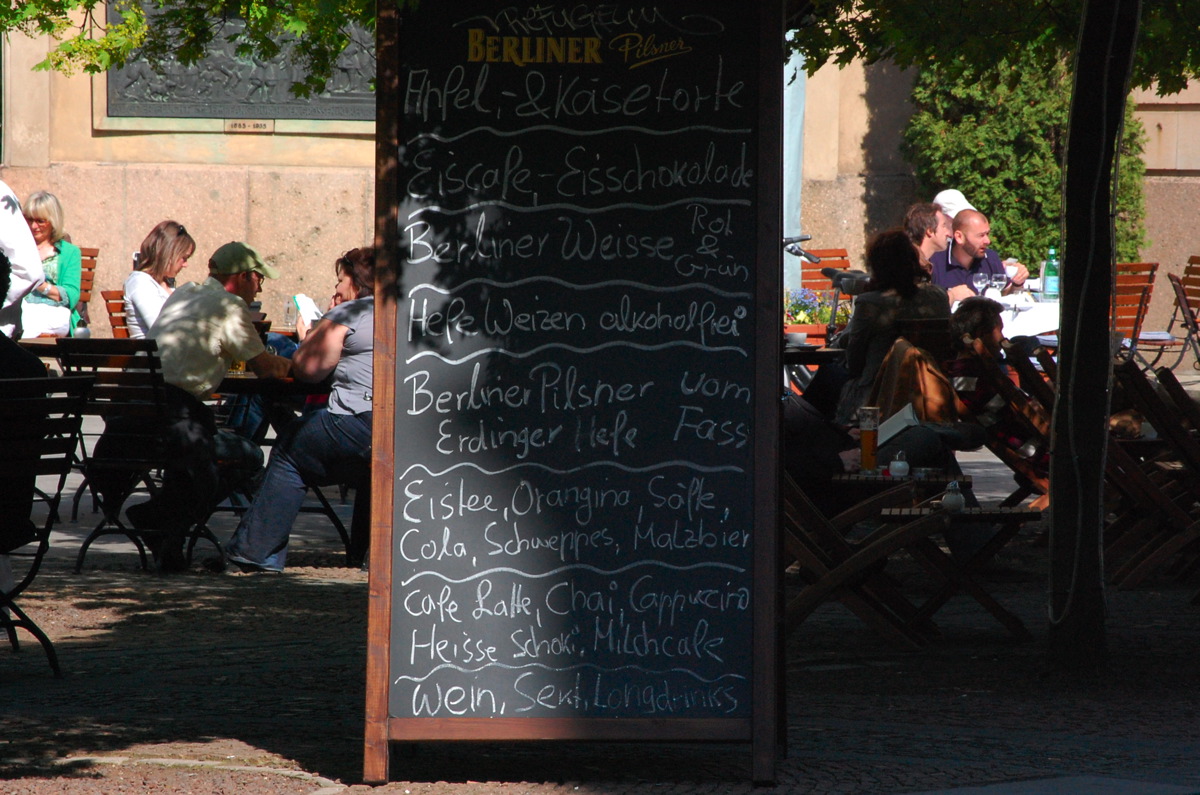 BERLINER Pilsner
Apfel,-&Käsetorte
Eiscafe,-Eisschokolade
Berliner Weisse Rot & Grün
Hefe Weizen alkoholfrei
Berliner Pilsner vom
Erdinger Hefe Fass
Eistee, Orangina, Säfte,
Cola, Schweppes, Malzbier
Cafe Latte, Chai, Cappuccino
Heisse Schoki, Milchcafe
Wein, Sekt, Longdrinks